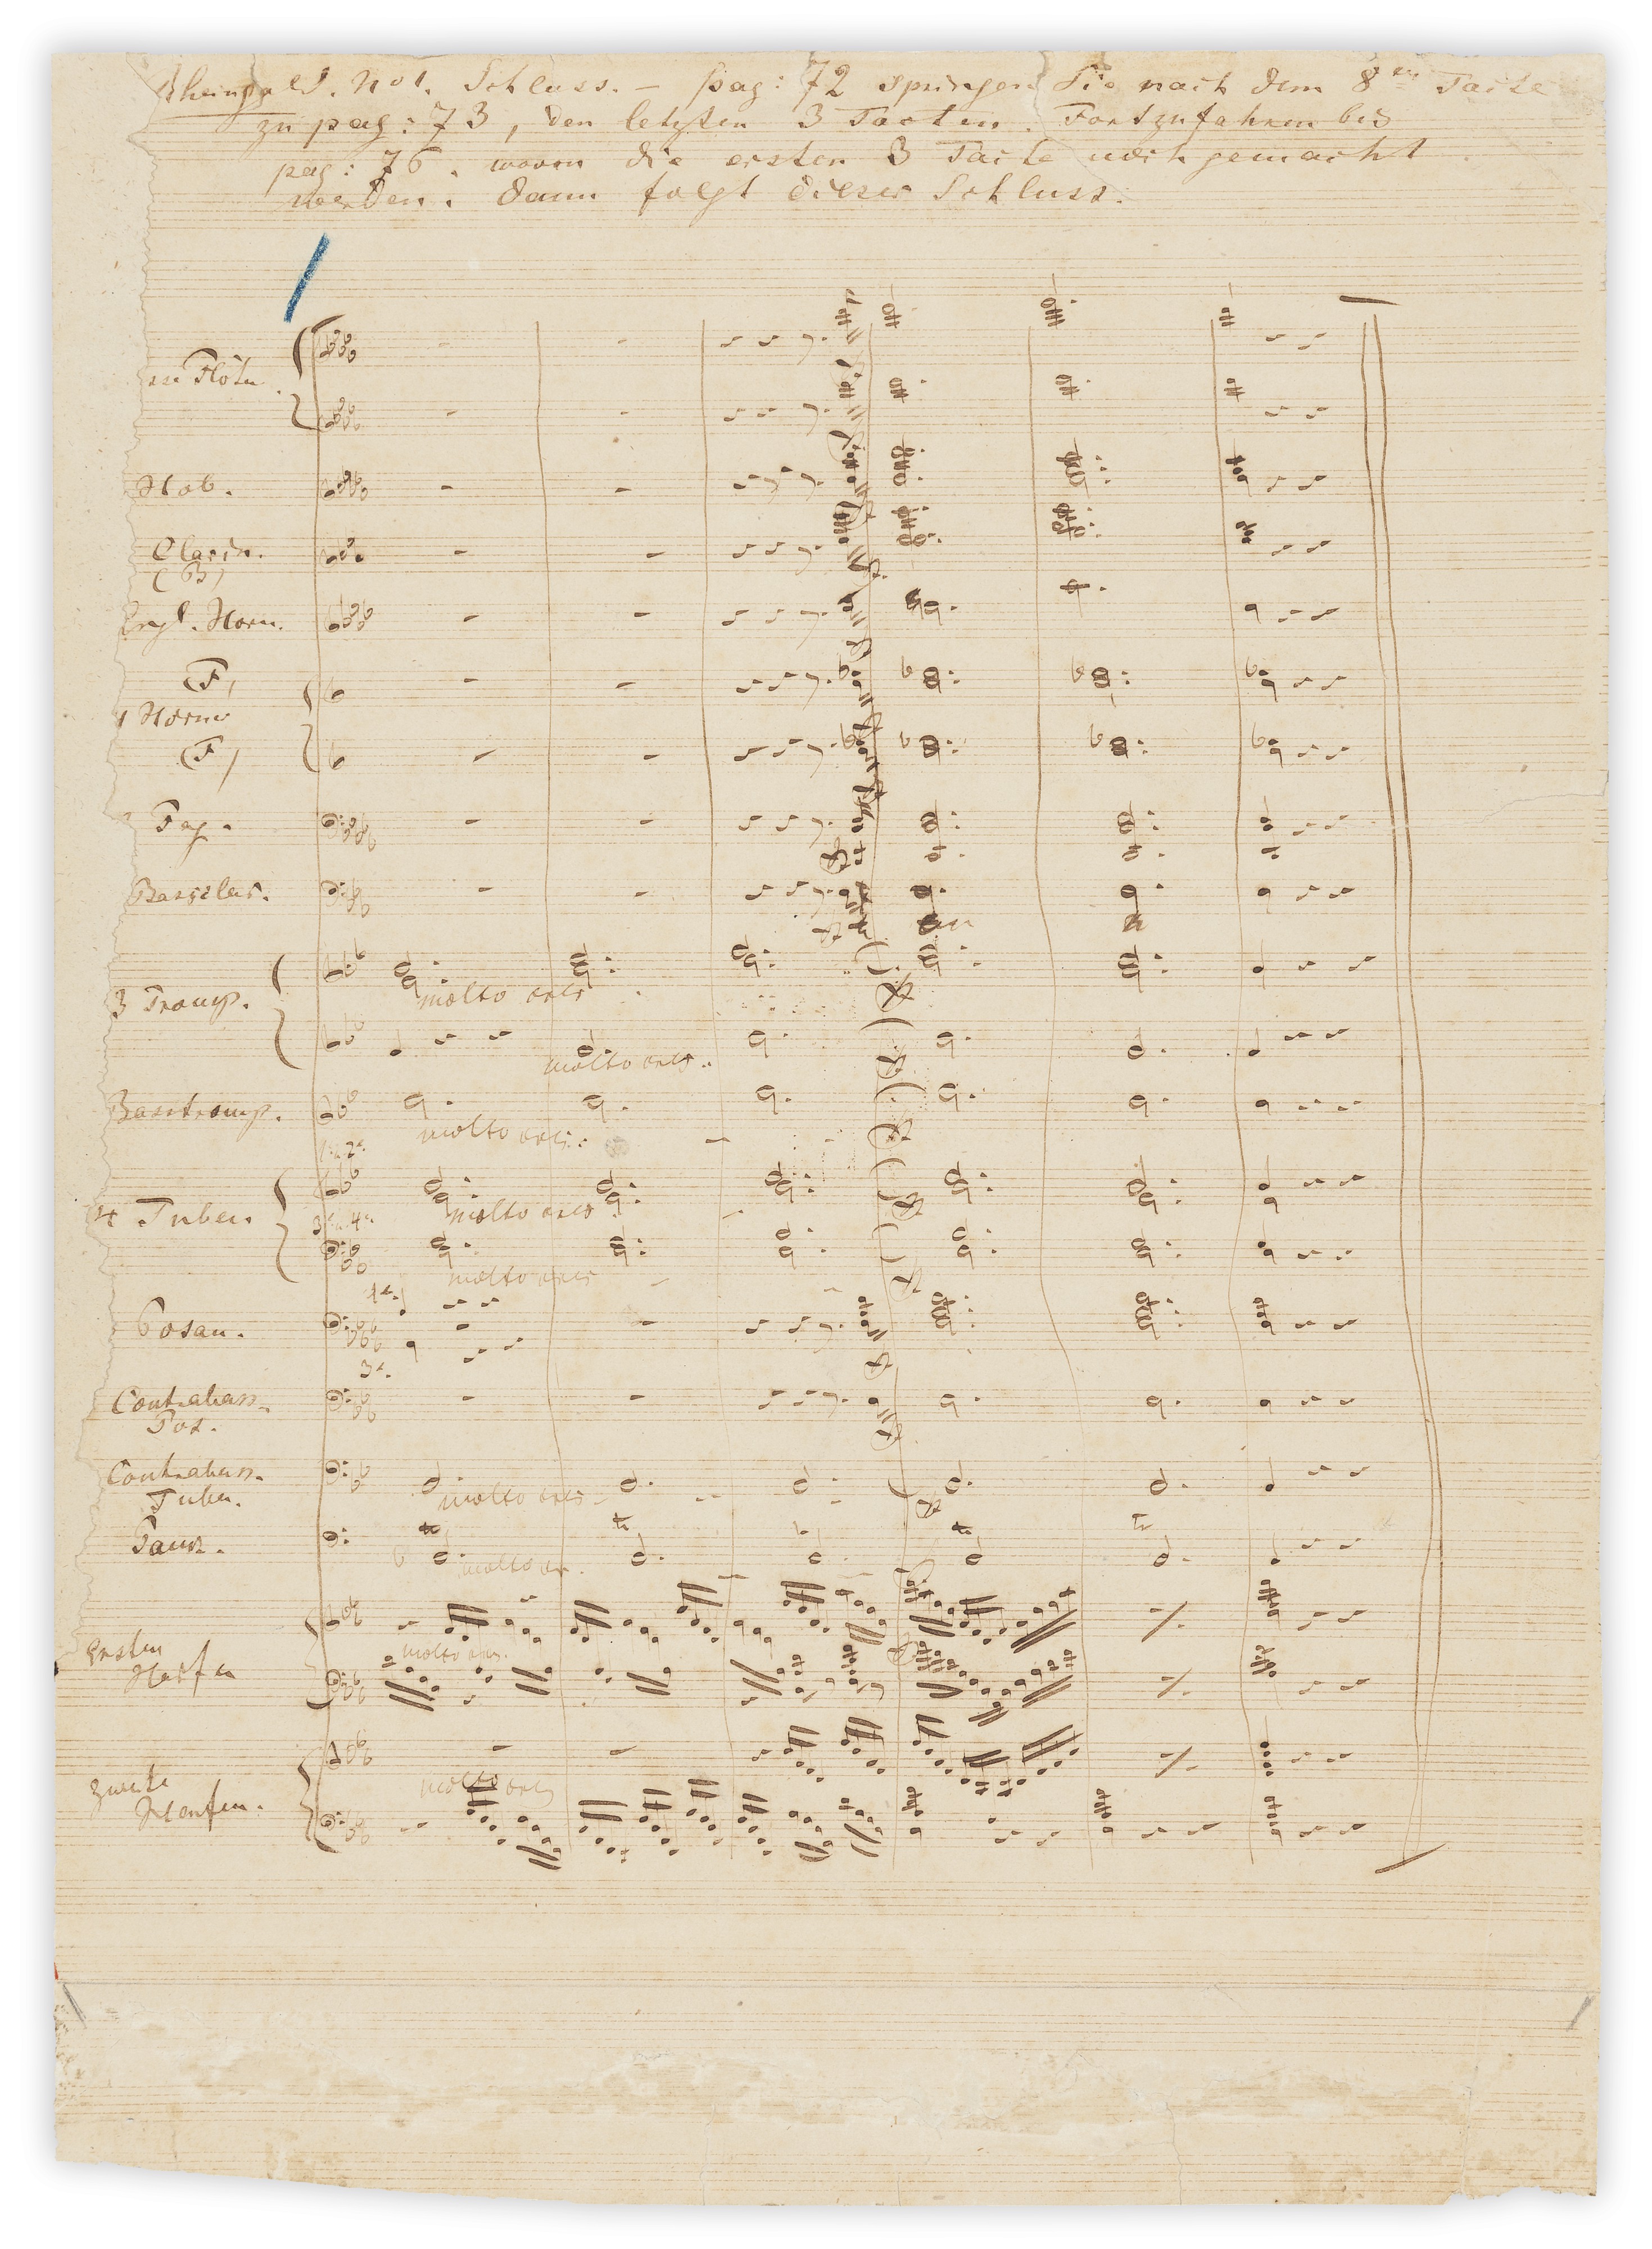 Rheingold. No 1. Schluss. – pag: 72 springen Sie nach dem 8ten Takte
zu pag: 73, den letzten 3 Takten. Fortzufahren bis
pag: 76. wovon die ersten 3 Takte noch gemacht
werden. dann folgt dieser Schluss.
Flöten
Hob.
Clarin.
(B)
Engl. Horn.
(F)
4 Hörner
(F)
Fag.
Bassclar.
3 Tromp.
molto cresc
molto cresc.
Basstromp.
molto cresc.
1. u. 2.
4 Tuben.
molto cresc
3. u. 4.
molto cresc
1.
Posau.
3.
Contrabass
Pos.
Contrabass.
Tuba.
molto cresc
tr tr tr tr
Pauk.
molto cr.
Ersten
Harfen
molto cresc.
Zweite
Harfen.
molto cresc